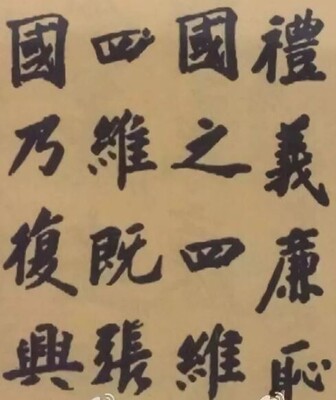 禮義廉恥
國之四維
四維既張
國乃復興